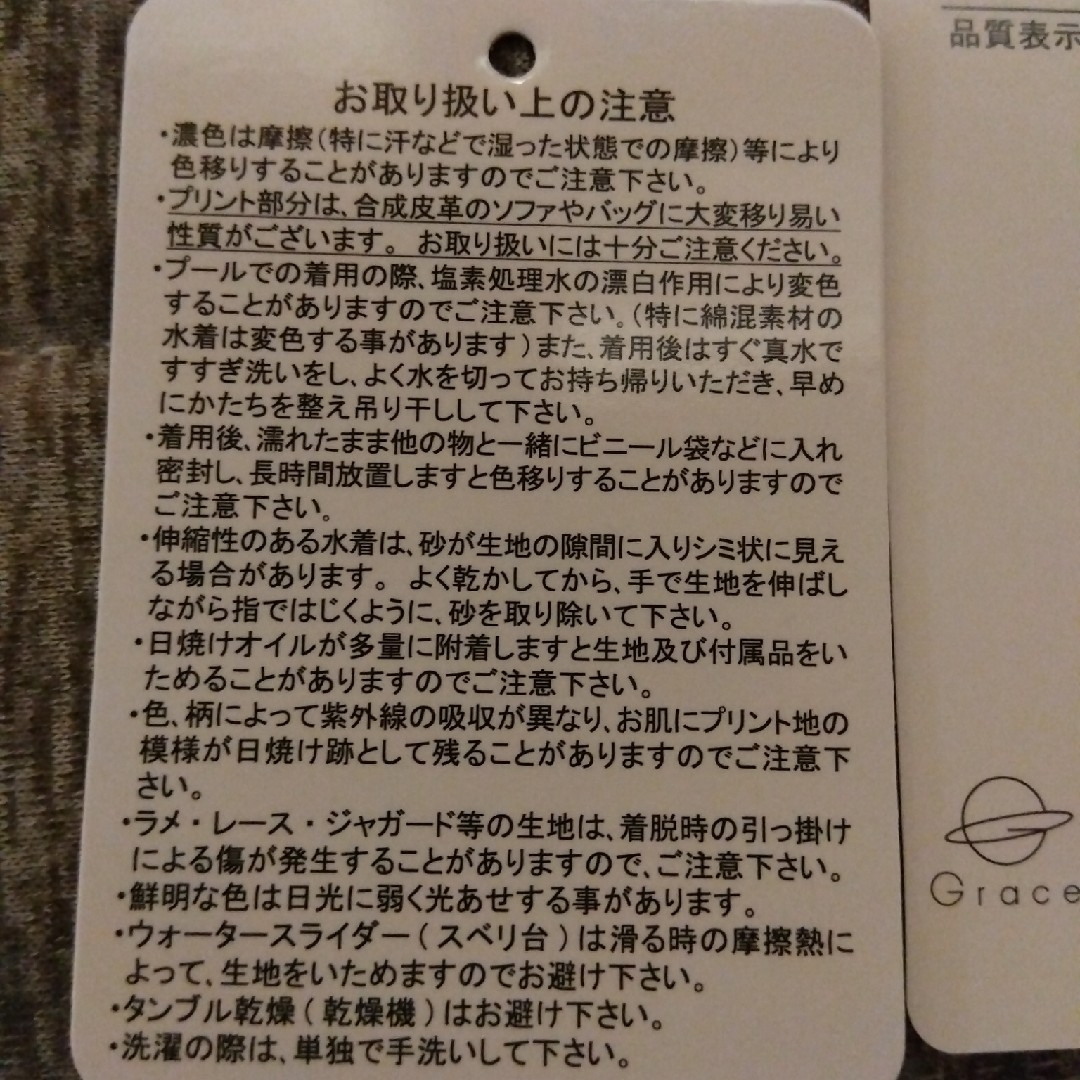 お取り扱い上の注意
・濃色は摩擦(特に汗などで湿った状態での摩擦)等により
色移りすることがありますのでご注意下さい。
・プリント部分は、合成皮革のソファやバッグに大変移り易い
性質がございます。 お取り扱いには十分ご注意ください。
・プールでの着用の際、塩素処理水の漂白作用により変色
することがありますのでご注意下さい。(特に綿混素材の
水着は変色する事があります)また、着用後はすぐ真水で
すすぎ洗いをし、よく水を切ってお持ち帰りいただき、早め
にかたちを整え吊り干しして下さい。
・着用後、濡れたまま他の物と一緒にビニール袋などに入れ
密封し、長時間放置しますと色移りすることがありますので
ご注意下さい。
・伸縮性のある水着は、砂が生地の隙間に入りシミ状に見え
る場合があります。 よく乾かしてから、手で生地を伸ばし
ながら指ではじくように、砂を取り除いて下さい。
・日焼けオイルが多量に附着しますと生地及び付属品をい
ためることがありますのでご注意下さい。
・色、柄によって紫外線の吸収が異なり、お肌にプリント地の
模様が日焼け跡として残ることがありますのでご注意下
さい。
・ラメ・レース・ジャガード等の生地は、着脱時の引っ掛け
による傷が発生することがありますので、ご注意下さい。
・鮮明な色は日光に弱く光あせする事があります。
・ウォータースライダー(スベリ台)は滑る時の摩擦熱に
よって、生地をいためますのでお避け下さい。
・タンブル乾燥(乾燥機)はお避け下さい。
・洗濯の際は、単独で手洗いして下さい。
品質表示
Grace